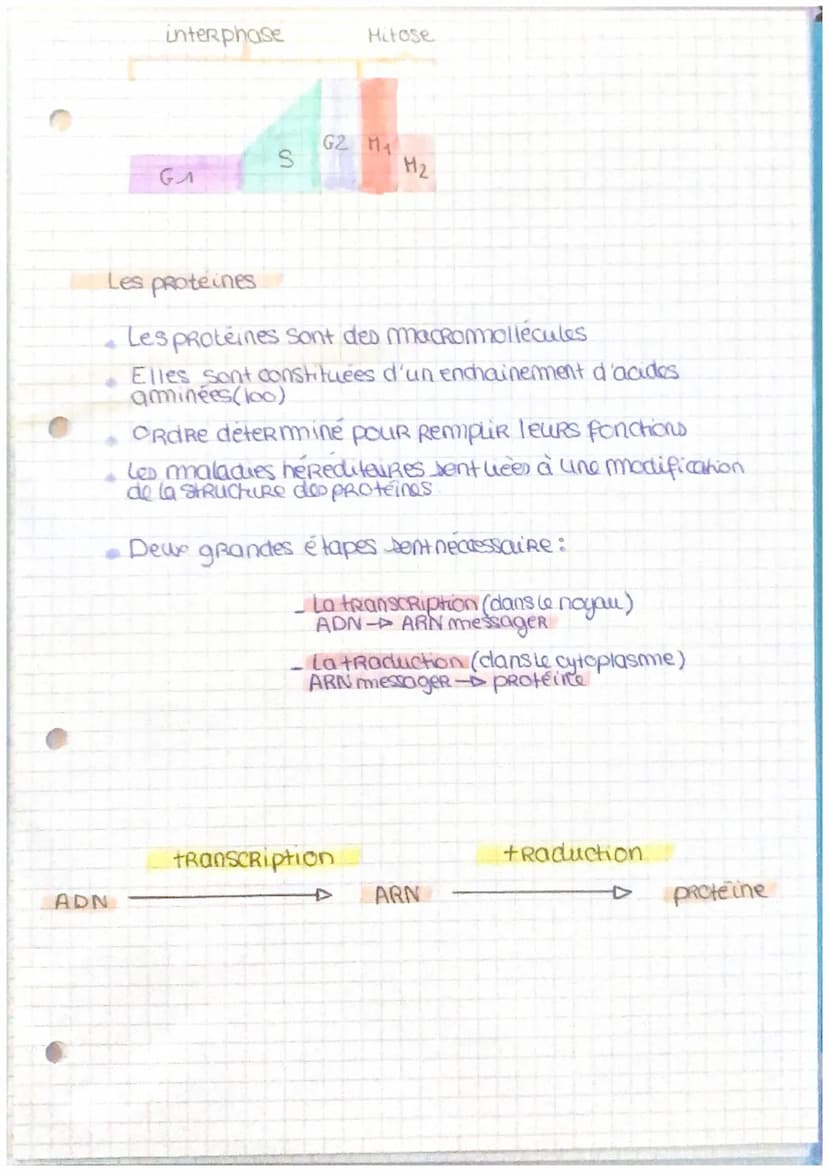 interphase Mitose
G1 S G2 M1 M2
Les protéines
Les protéines sont des macromollécules
Elles sont constituées d'un enchainement d'acides
aminées (100)
Ordre déterminé pour remplir leurs fonctions
Les maladies héréditaires sent liées à une modification
de la structure des protéines
Deux grandes étapes sent nécessaire :
- La transcription (dans le noyau)
ADN → ARN messager
- La traduction (dans le cytoplasme)
ARN messager → protéine
transcription traduction
ADN → ARN → protéine